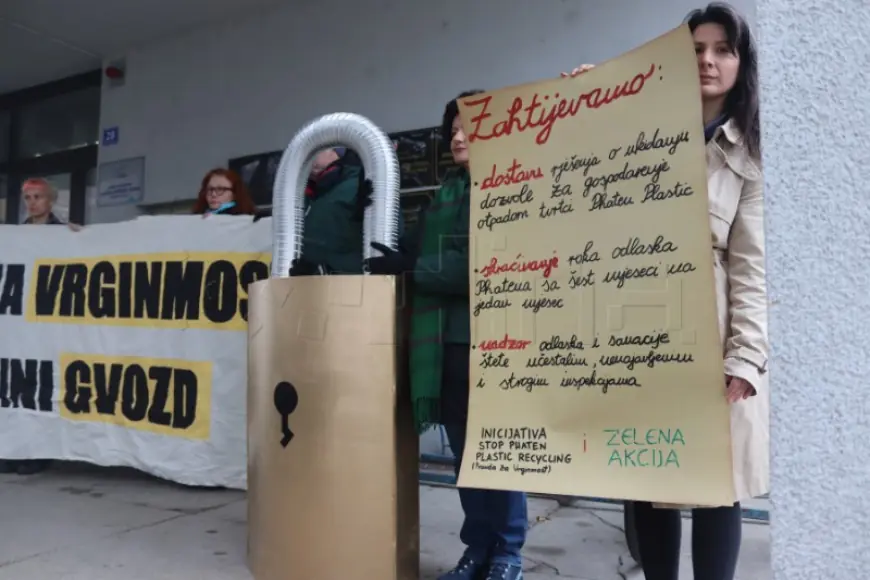 Zahtijevamo:
· dostavu rješenja o ukidanju
dozvole za gospodarenje
otpadom tvrtci Phateu Plastic
· skraćivanje roka odlaska
Phatena sa šest mjeseci na
jedan mjesec
· nadzor odlaska i sanacije
štete učestalim, nenajavljenim
i strogim inspekcijama
INICIJATIVA
STOP PHATEN
PLASTIC RECYCLING
(Pravda za Vrginmost)
i
ZELENA
AKCIJA
VRGINMOS
GVOZD